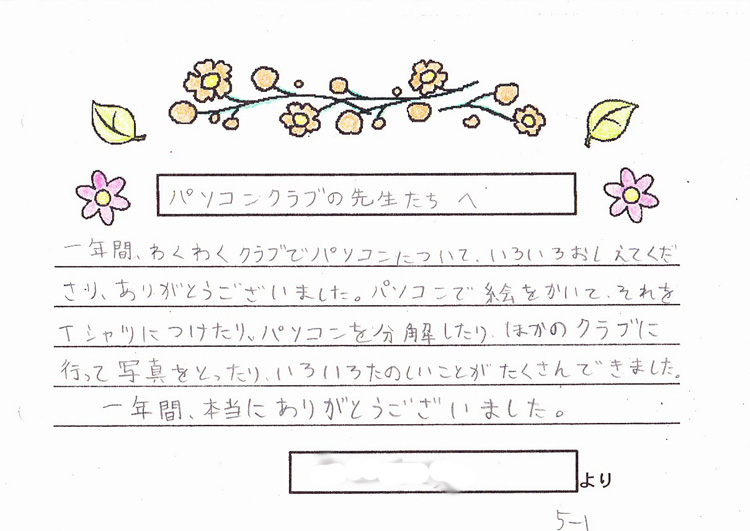 パソコンクラブの先生たちへ
一年間、わくわくクラブでパソコンについて、いろいろおしえてくだ
さり、ありがとうございました。パソコンで絵をかいて、それを
Tシャツにつけたり、パソコンを分解したり、ほかのクラブに
行って写真をとったり、いろいろたのしいことがたくさんできました。
一年間、本当にありがとうございました。
より
5-1